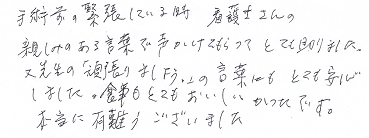 手術前の緊張している時 看護士さんの
親しみのある言葉で声かけてもらって とても助りました。
又先生の「頑張りましょう。」の言葉にも とても安心
しました。食事もとてもおいしいかったです。
本当に有難うございました